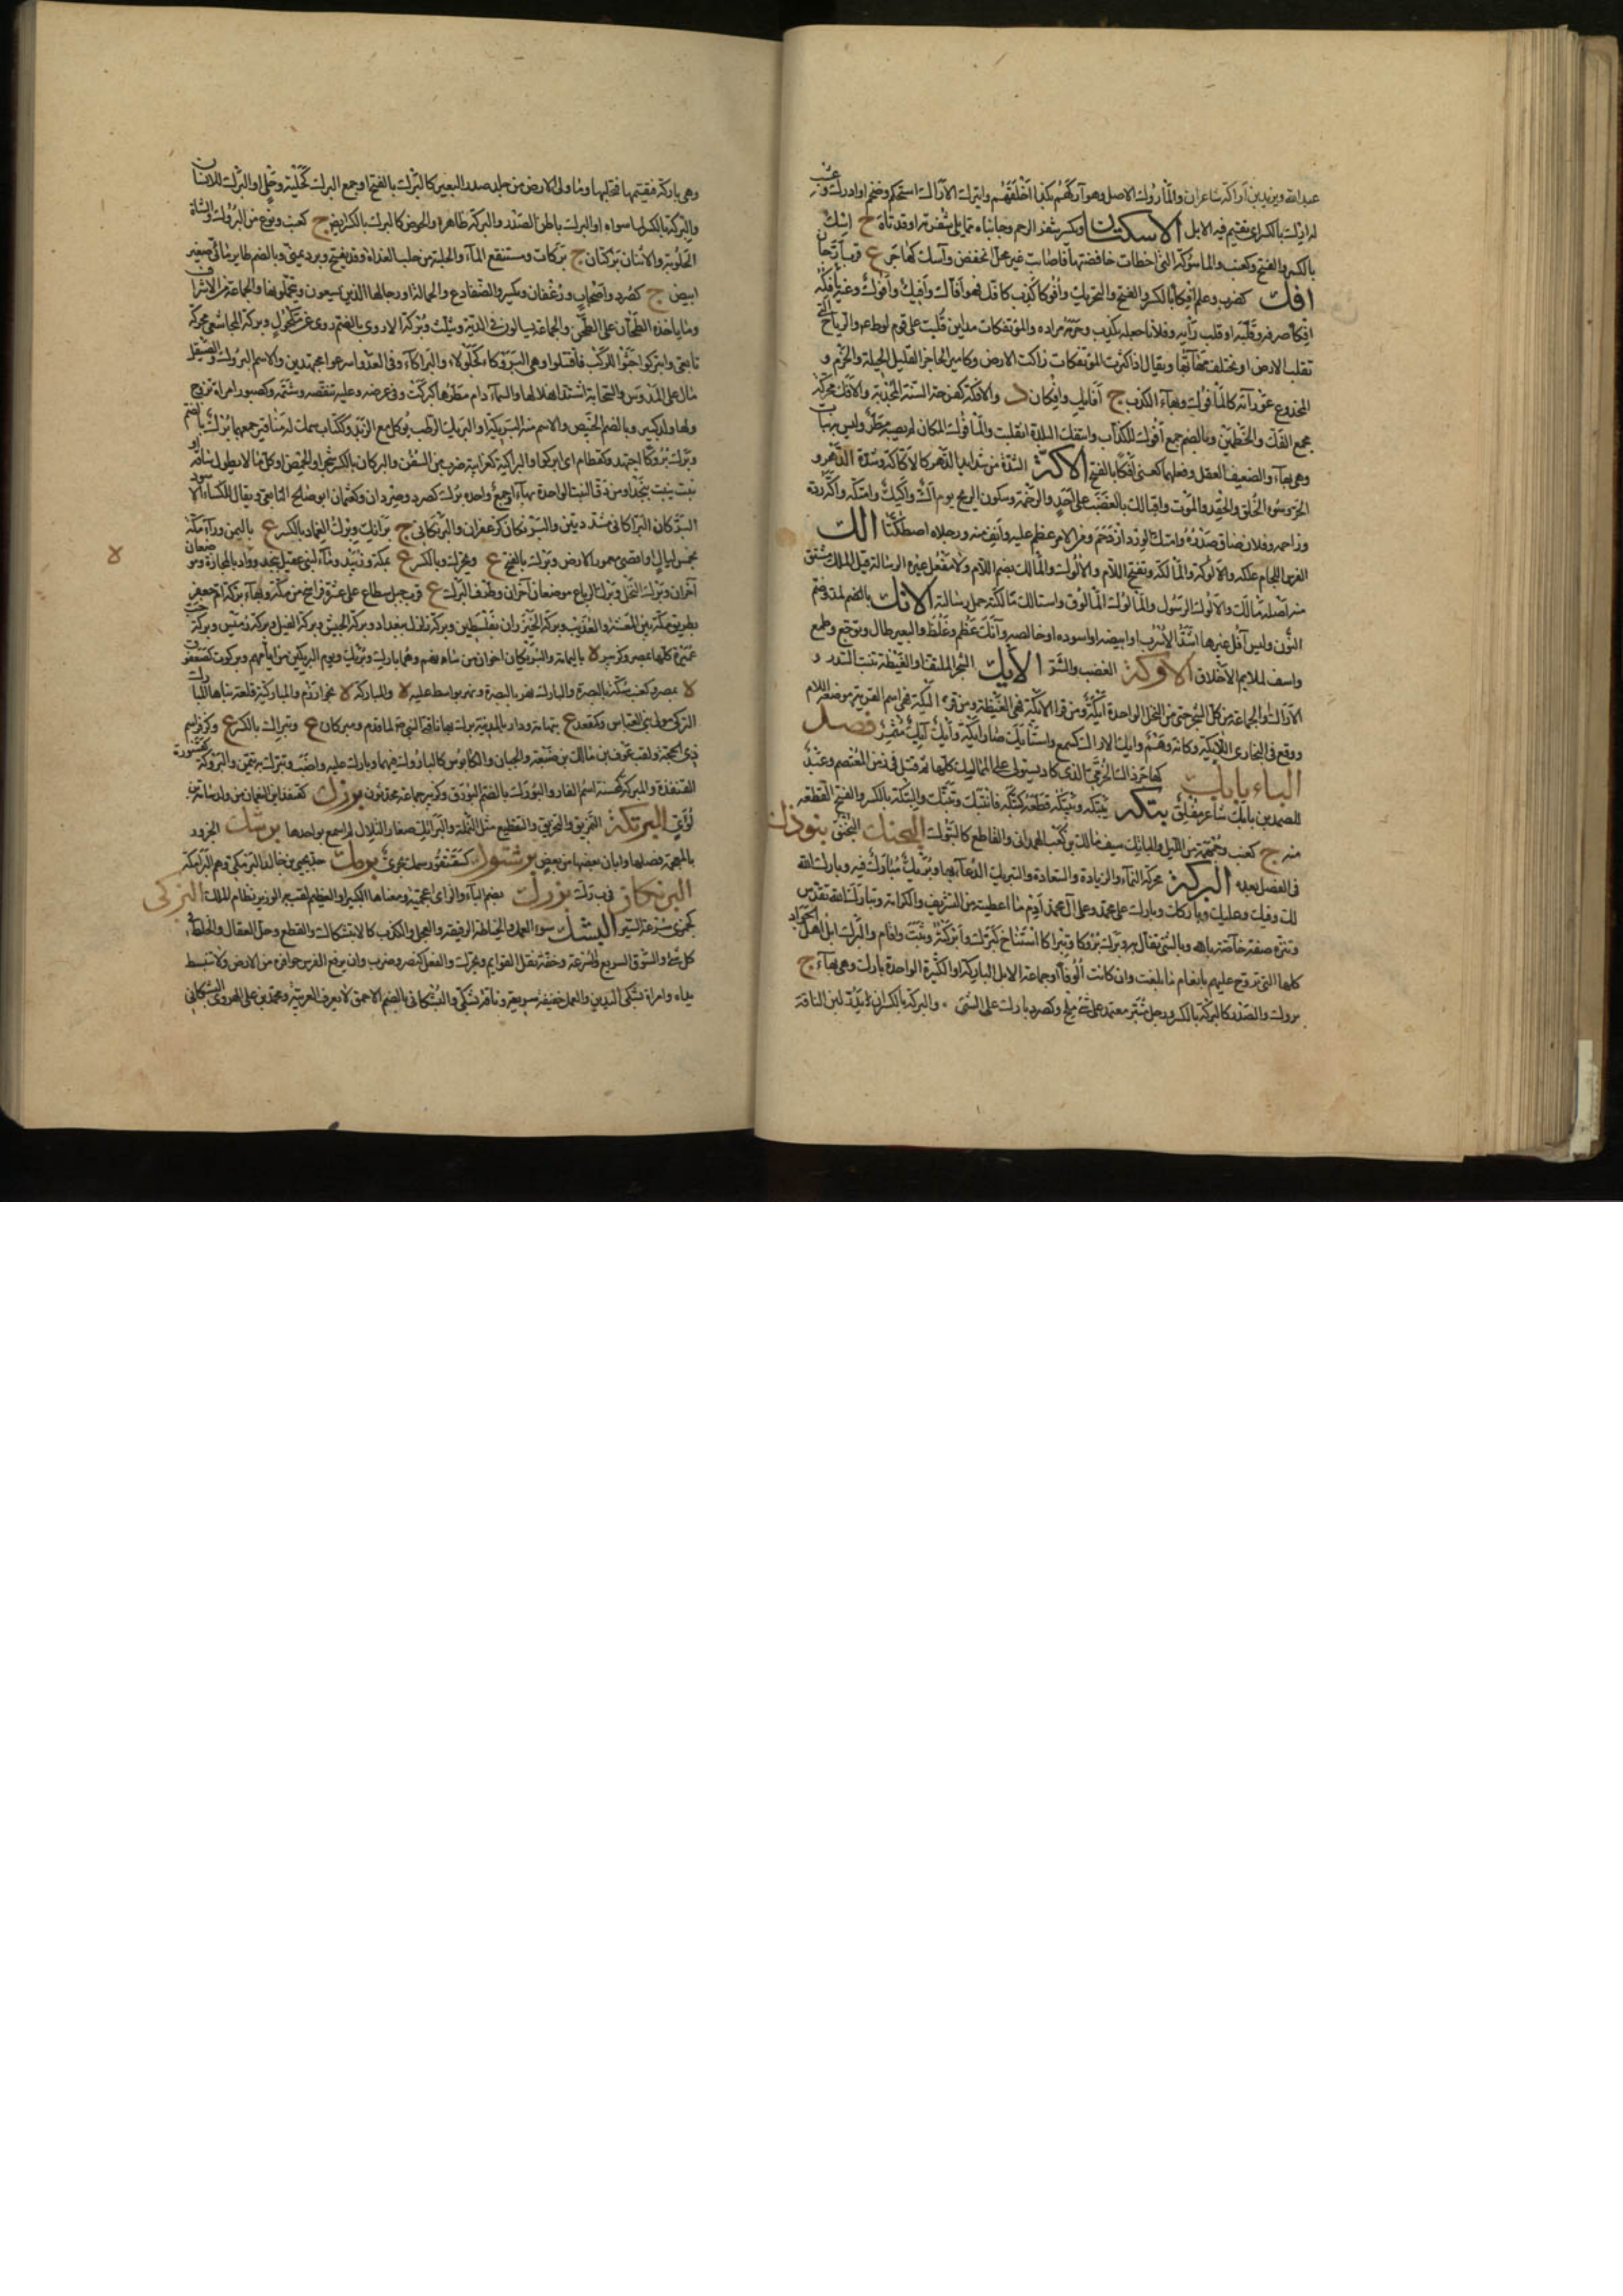 عبد الله ويزيد بن أراكة شاعران والمأروك الاصل وهو آركهم بكذا أخلقهم وايترك الأراك استحكم وضخم او ادرك وعشب
له ارك بالكسر اى تقيم فيه الابل الاسكتان ويكسر شفر الرحم وجانباه مما يلى شفريه او قدتاه ج اسك
بالكسر والفتح وكعنب والماسوكة التى اخطات خافضتها فاصابت غير محل الخفض وآسك كهاجر ع قرب ارجان
افك كضرب وعلم افكا بالكسر والفتح والتحريك وأفوكا كذب كافك فهو أفاك وأفيك وأفوك وعنه يأفكه
افكا صرفه وقلبه او قلب رأيه وفلانا جعله يكذب وحرمه مراده والمؤتفكات مداين قلبت على قوم لوط عم والرياح التى
تقلب الارض او تختلف مهابها ويقال اذا كثرت المؤتفكات زكت الارض وكامير العاجز القليل الحيلة والحزم و
المخدوع عن رأيه كالمأفوك وبهاء الكذب ج أفايك وافكان د والافكة كفرحة السنة المجدبة والافك محركة
مجمع الفك والخطمين وبالضم جمع أفوك للكذاب وائتفكت البلدة انقلبت والمأفوك المكان لم يصبه مطر وليس به نبات
وهى بهاء والضعيف العقل وفعلهما كعنى افكا بالفتح الاكة الشدة من شدايد الدهر كالاكاكة وشدة الدهر و
الحر وسوء الخلق والحقد والموت واقبالك بالغضب على احد والزحمة وسكون الريح يوم اك واكيك وائتك واكه رده
وزاحمه وفلان ضاق صدره وائتك الورد ازدحم ومن الامر عظم عليه وأنف منه ورجلاه اصطكتا الك
الفرس اللجام علكه والالوكة والمألكة وتفتح اللام والالوك والمألك بضم اللام ولا مفعل غيره الرسالة قيل الملك مشتق
منه اصله مألك والالوك الرسول والمألوك المألوق واستألك مألكته حمل رسالته الانك بالمد وضم
النون وليس أفعل غيرها اشد الاسرب او ابيضه او اسوده او خالصه وآنك عظم وغلظ والبعير طال وتوجع وطمع
واسف لملايم الأخلاق الاوكة الغضب والشر الايك الشجر الملتف او الغيضة تنبت السدر و
الاراك او الجماعة من كل الشجر حتى من النخل الواحدة أيكة ومن قرأ الايكة فهى الغيضة ومن قرأ ليكة فهى اسم القرية وموضعه اللام
ووقع فى البخارى اللايكة وكانه وهم وايك الاراك كسمع واستأيك صار أيكة وأيك أيك مثمر فصل
الباء بابك كهاجر ذاك الخرمى الذى كاد يستولى على الممالك كلها ثم قتل فى زمن المعتصم وعبد
الصمد بن بابك شاعر مفلق بتكه يبتكه ويبتكه قطعه كبتكه فانبتك وتبتك والبتكة بالكسر والفتح القطعة
منه ج كعنب وجهمة من الليل والباتك سيف مالك بن كعب الهمدانى والقاطع كالبتوك البحنك البخنق بنوذك
فى الفصل بعده البركة محركة النماء والزيادة والسعادة والتبريك الدعاء بها وبريك مبارك فيه وبارك الله
لك وفيك وعليك وباركك وبارك على محمد وعلى آل محمد أدم ما اعطيته من التشريف والكرامة وتبارك الله تقدس
وتنزه صفة خاصة بالله وبالشئ تفأل به وبرك بروكا وتبراكا استناخ كبرك وأبركته وثبت واقام والبرك ابل اهل الحواء
كلها التى تروح عليهم بالغة ما بلغت وان كانت ألوفا او جماعة الابل الباركة او الكثيرة الواحد بارك وهى بهاء ج
بروك والصدر كالبركة بالكسر ورجل مبترك معتمد على شئ ملح وكصرد بارك على الشئ والبركة بالكسر ان يدر لبن الناقة
وهى باركة فيقيمها فيحلبها وما ولى الارض من جلد صدر البعير كالبرك بالفتح او جمع البرك كحلية وحلى او البرك للانسان
والبركة بالكسر لما سواه او البرك باطن الصدر والبركة ظاهره والحوض كالبرك بالكسر ايضا ج كعنب ونوع من البروك والشاة
الحلوبة والاثنتان بركتان ج بركات ومستنقع الماء والحلبة من حلب الغداة وقد يفتح وبرد يمنى وبالضم طاير مائى صغير
ابيض ج كصرد واصحاب ورغفان ويكسر والضفادع والحمالة او رجالها الذين يسعون ويتحملونها والجماعة من الاشراف
وما يأخذه الطحان على الطحن والجماعة يسالون فى الدية ويثلث وبركة الاردى بالفتح روى عن مكحول وبركة المجاشعى محركة
تابعى وابتركوا جثوا للركب فاقتتلوا وهى البروكاء كجلولاء والبراكاء وفى العدو اسرعوا مجتهدين والاسم البروك والصيقل
مال على المدوس والسحابة اشتد انهلالها والسماء دام مطرها كبركت وفى عرضه وعليه تنقصه وشتمه وكصبور امراة تزوج
ولها ولد كبير وبالضم الخبيص والاسم منه البريكة او البريك الرطب يؤكل مع الزبد وككتاب سمك له مناقير جمعهما برك بالضم
وبرك بروكا اجتهد وكقطام اى ابركوا والبراكية كغرابية ضرب من السفن والبركان بالكسر شجر او الحمض او كل ما لا يطول ساقه او
نبت ينبت بنجد او من دق النبت الواحدة بهاء او جمع واحده برك كصرد وصردان وكعثمان ابو صالح التابعى ويقال للكساء الاسود
البركان البركانى مشددتين والبرنكان كزعفران والبرنكانى ج برانك وبرك الغماد بالكسر ع باليمن وراء مكة
بخمس ليال او اقصى معمور الارض وبرك بالفتح ع ويحرك وبالكسر ع بمكة وزبيد وماء لبنى عقيل بنجد وواد بالمجازة وموضعان
آخران وبرك النخل وبرك الرباع موضعان آخران وطرف البرك ع قرب جبل سطاع على عشرة فراسخ من مكة وبهاء بركة ام جعفر
بطريق مكة بين المغيثة والعذيب وبركة الخيزران بفلسطين وبركة زلزل ببغداد وبركة الحبش وبركة الفيل وبركة رميس وبركة جب
عميرة كلها بمصر وكزبير لا باليمامة والبريكان اخوان من شاه نعم وهما بارك وبريك ويوم البريكين من ايامهم وبركوت كصعفوق
لا بمصر وكعنب سكة بالبصرة والبارك نهر بالبصرة ونهر بواسط عليه لا والمباركة لا بخوارزم والمباركية قلعة بناها المبارك
التركى مولى بنى العباس وكمقعد ع بتهامة ودار بالمدينة بركت بها ناقة النبى ص لما قدم ومبركان ع وتبراك بالكسر ع وكزفر اسم
ذى الحجة ولقب عوف بن مالك بن ضبيعة والجبان والكابوس كالباروك فيهما وبارك عليه واظب وتبرك به تيمن والبروكة كقشورة
القنفذة والمبركة كمحسنة اسم النار والبورك بالضم البورق وكزبير جماعة محدثون بورك كقنفذ ابن النعمان من ولد سامة بن
لؤى البرتكة التمزيق والتخريق والتقطيع مثل النملة والبرائك صغار التلال لم اسمع بواحدها برشك الجزور
بالمعجمة فصلها وابان بعضها من بعض برشتوك كسقنقور سمك بحرى برمك جد يحيى بن خالد البرمكى وهم البرامكة
البرنكان فى برك بزرك بضم الباء والزاى اعجمية ومعناها الكبير او العظيم لقب به الوزير نظام الملك البزكى
كجمزى سرعة السير البشك سوء العمل والخياطة الرديئة والعجل والكذب كالابتشاك والقطع وحل العقال والخلط فى
كل شئ والسوق السريع والسرعة وخفة نقل القوايم ويحرك والفعل كنصر وضرب وان يرفع الفرس حوافره من الارض ولا تنبسط
يداه وامراة بشكى اليدين والعمل خفيفة سريعة وناقة بشكى والبشكانى بالضم الاحمق لا يعرف العربية ومحمد بن على الهروى البشكانى